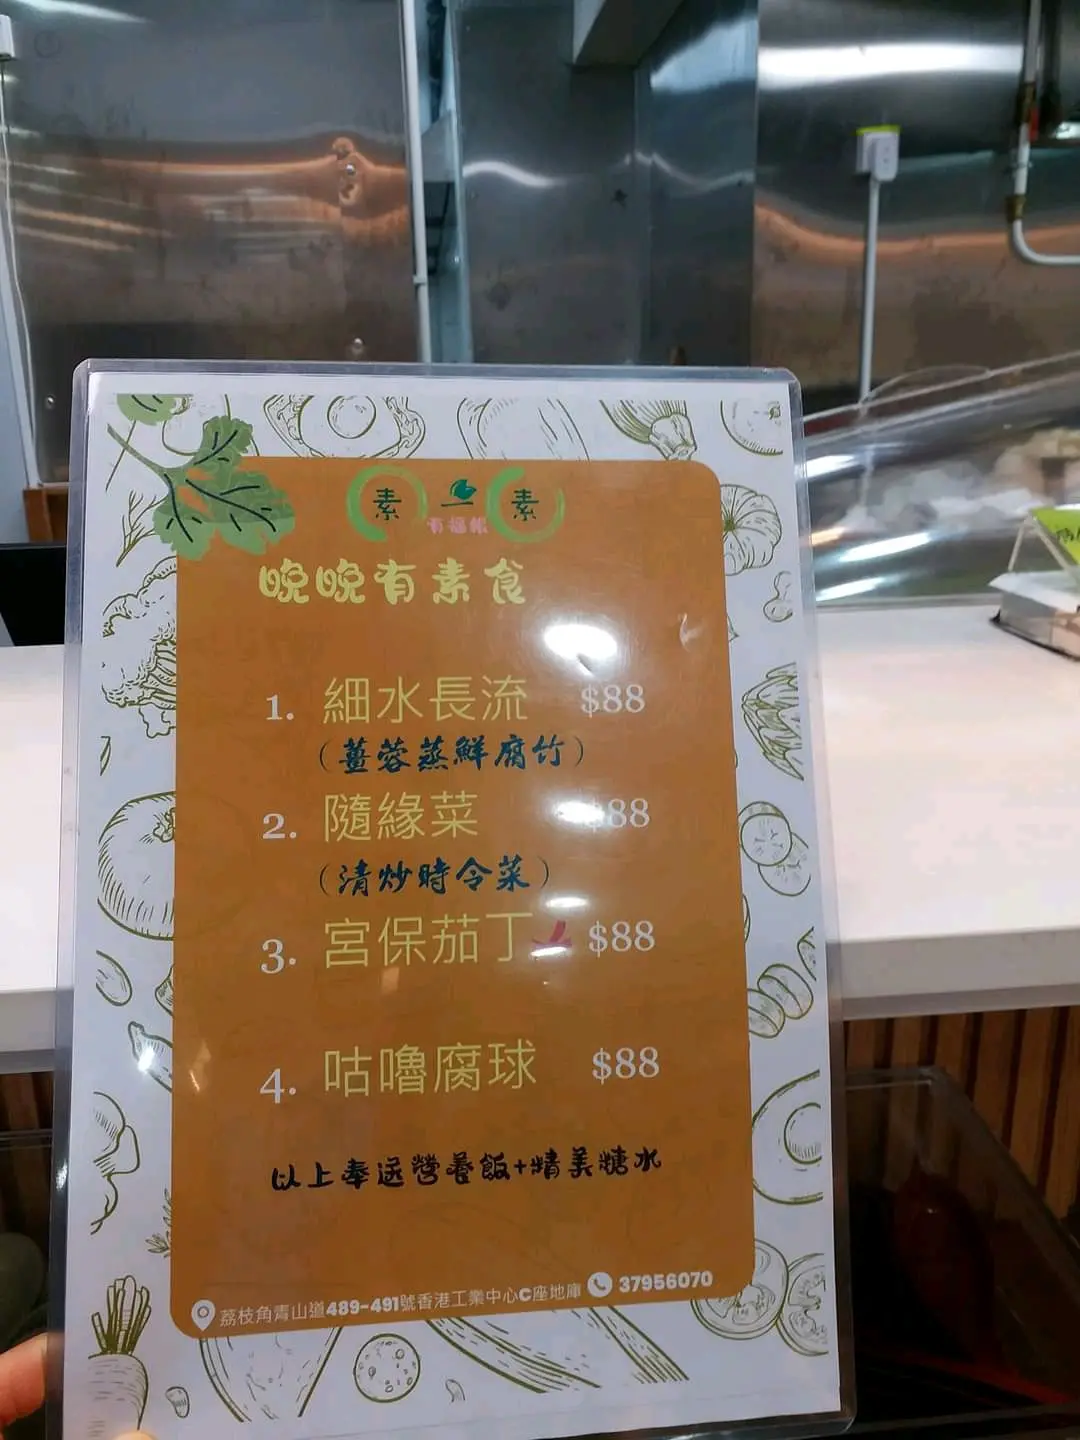 素一素
有福飯
晚晚有素食
1. 細水長流 $88
(薑蓉蒸鮮腐竹)
2. 隨緣菜 $88
(清炒時令菜)
3. 宮保茄丁 $88
4. 咕嚕腐球 $88
以上奉送營養飯+精美糖水
荔枝角青山道489-491號香港工業中心C座地庫 37956070